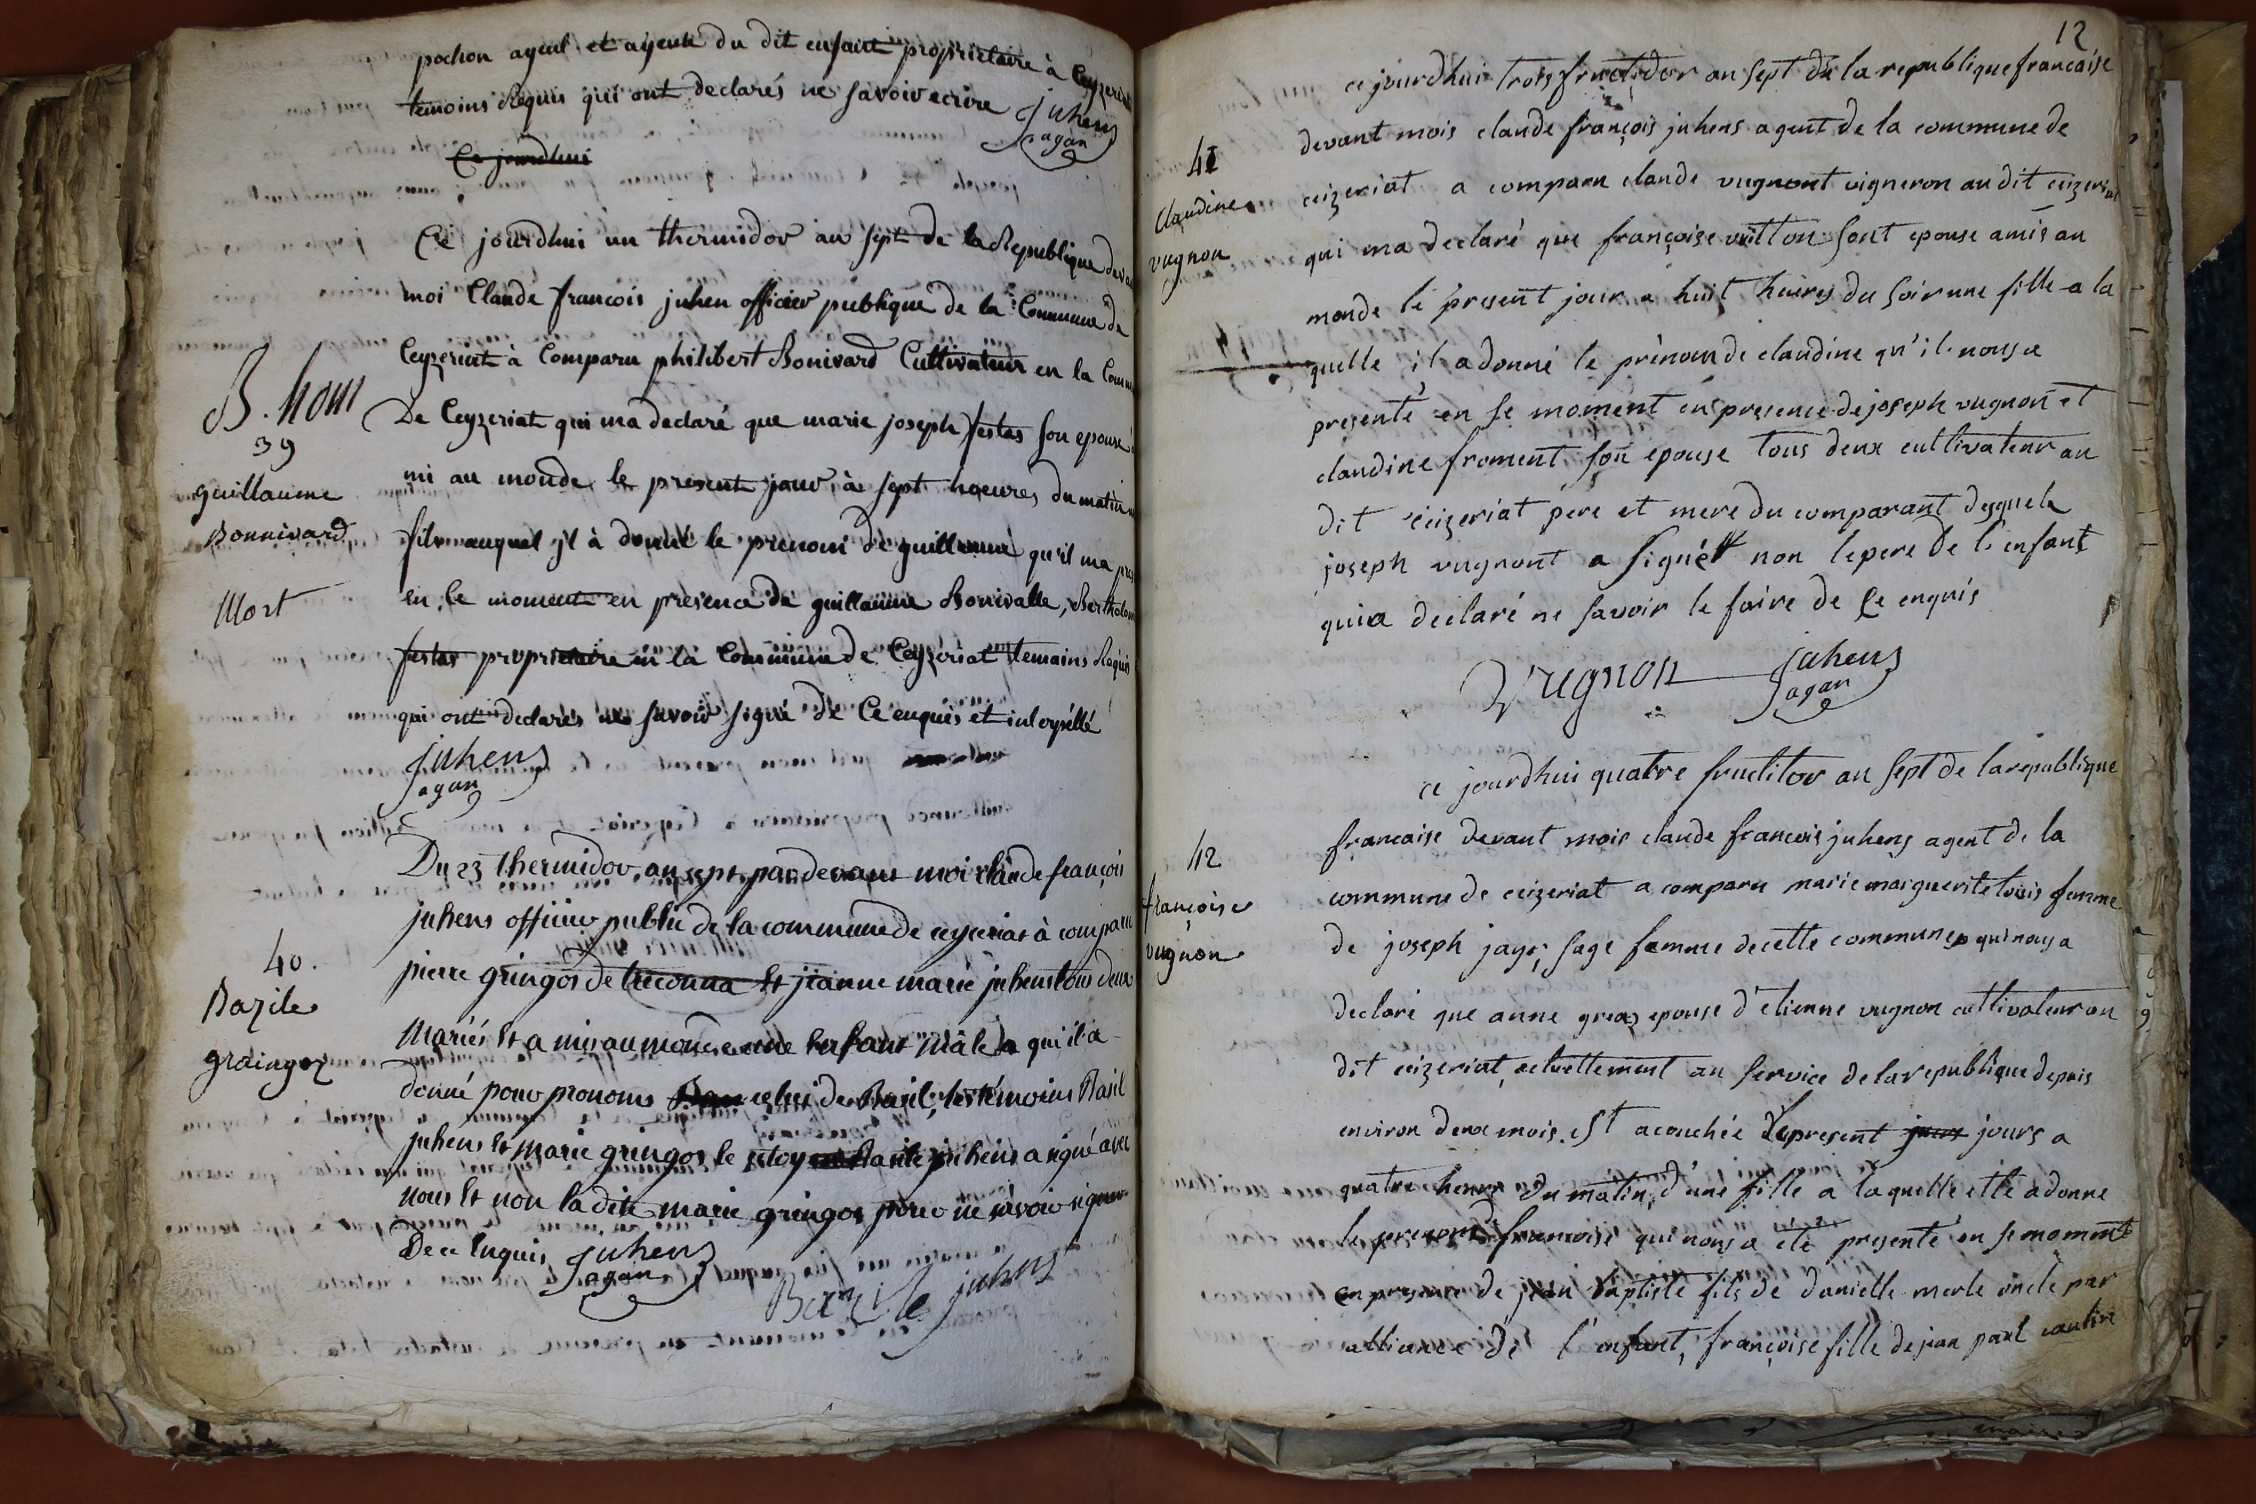 pochon ayeul et ayeule du dit enfant propriétaire à Ceyzeriat
temoins Requis qui ont declarés ne savoir ecrire juhens
agan
Ce jourdhui
Ce jourdhui un thermidor an sept de la Republique devant
moi Claude francois juhen officier publique de la Commune de
Ceyzeriat à Comparu philibert Bonivard Cultivateur en la Comm
B. hom
De Ceyzeriat qui ma declaré que marie joseph festas son epouse à
39
mi au monde le present jour à sept hoeures du matin un
guillaume
Bonnivard
fils auquel jl à donné le prenom de guillaume qu'il ma pres
Mort
en ce moment en presence de guillaume Bonivalle, Bertholom
festas propriétaire en la Commune de Ceyzeriat temains Requis
qui ont declarés ne savoir signé de Ce enquis et interpéllé
juhens
agan
Du 23 thermidor, an sept, pardevant moi claude françois
juhens officier public de la commune de ceyzeriat à comparu
40.
pierre gringos de treconna et jeanne marie juhens tous deux
Bazile
graingoz
Mariés et a mis au monde une enfant mâle a qui il a
donné pour pronoms celui de Basil, les témoins Basil
juhens et marie gringos le sitoyen Basile juhens a signé avec
nous et non ladite marie gringos pour ne savoir signer
De ce Enquis juhens
agan
Bazile juhens
12
ce jourdhui trois fructidor an sept de la republique francaise
devant mois claude françois juhens agent de la commune de
41
ceizeriat a comparu claude vugnont vigneron au dit ceizeriat
Claudine
vugnon
qui ma declaré que françoise vuitton sont epouse amis au
monde le present jour a huit huires du soir une fille a la
quelle il a donné le prénom de claudine qu'il nous a
presenté en se moment en presence de joseph vugnon et
claudine froment son epouse tous deux cultivateur au
dit ceizeriat pere et mere du comparant desquels
joseph vugnont a signé et non le pere de l'enfant
qui a declaré ne savoir le faire de ce enquis
Vugnon juhens
agan
ce jourdhui quatre fructitor an sept de la republique
francaise devant mois claude francois juhens agent de la
42
commune de ceizeriat a comparu marie marguerite louis femme
françoise
vugnon
de joseph jayr, sage femme de cette commune qui nous a
declaré que anne greas epouse d'etienne vugnon cultivateur au
dit ceizeriat, actuettement au service de la republique depuis
environ deux mois. est acouchée le present jour jours a
quatre heure du matin, d'une fille a la quelle elle a donne
le prenom de francoise qui nous a été presenté en se moment
en presence de jean baptiste fils de danielle merle oncle par
alliance de l'enfant, françoise fille de jean paul